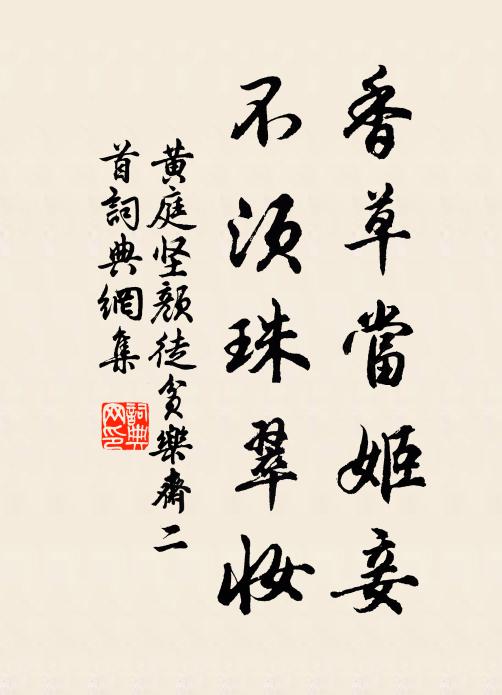 香草當姬妾
不須珠翠妝
黃庭坚顏徒貧樂齋二
首詞典網集
詞典
网印